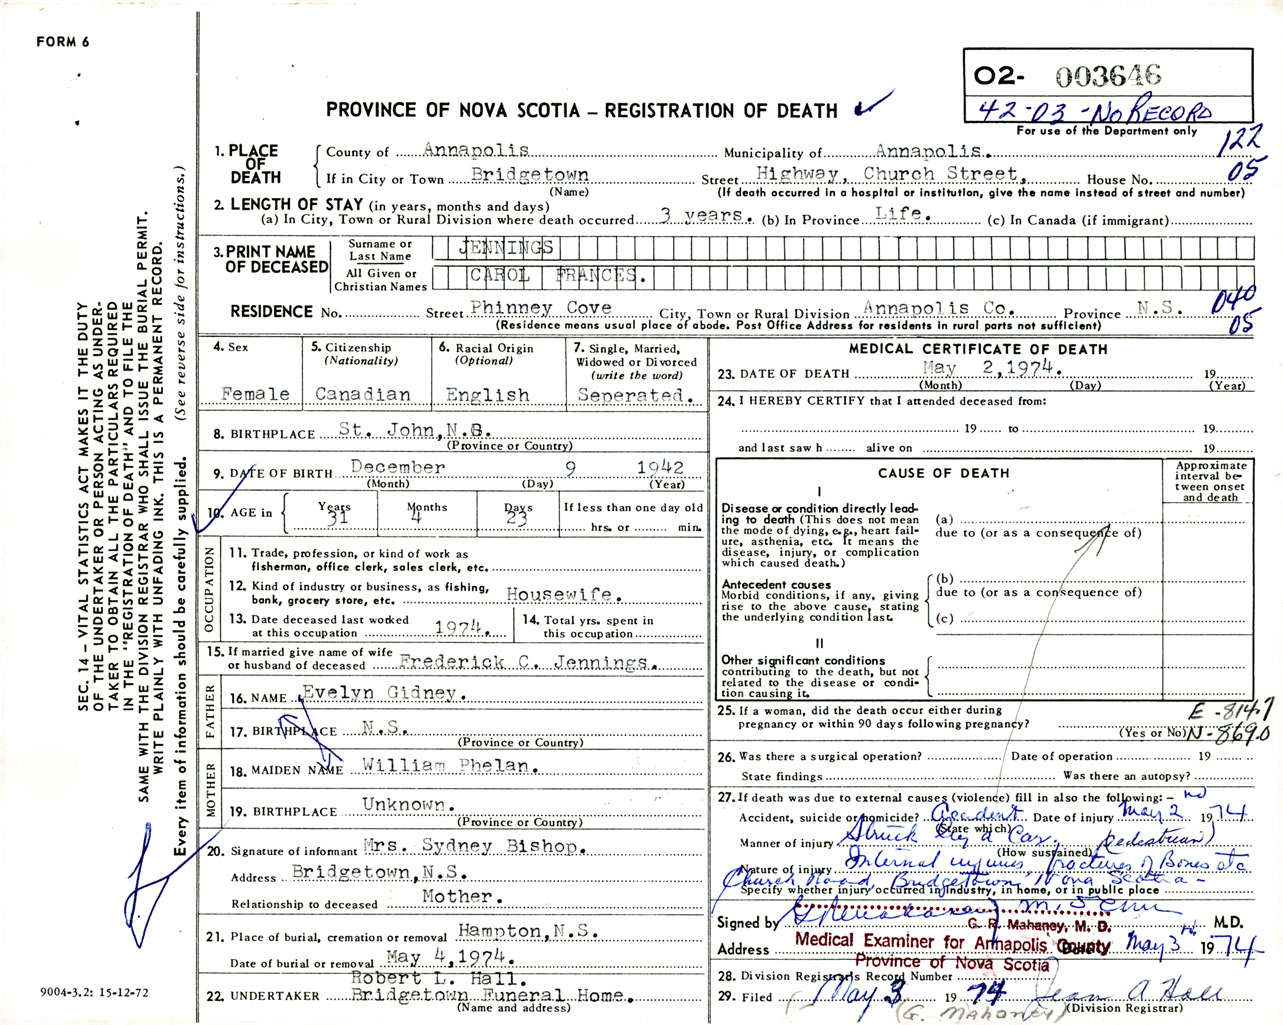 FORM 6
O2- 003646
42-03 - No RECORD
For use of the Department only
PROVINCE OF NOVA SCOTIA – REGISTRATION OF DEATH ✓
122
05
1. PLACE OF DEATH
County of Annapolis Municipality of Annapolis.
If in City or Town Bridgetown Street Highway, Church Street, House No.
(Name) (If death occurred in a hospital or institution, give the name instead of street and number)
2. LENGTH OF STAY (in years, months and days)
(a) In City, Town or Rural Division where death occurred 3 years. (b) In Province Life. (c) In Canada (if immigrant)
3. PRINT NAME OF DECEASED
Surname or Last Name JENNINGS
All Given or Christian Names CAROL FRANCES.
RESIDENCE No. Street Phinney Cove City, Town or Rural Division Annapolis Co. Province N.S.
040
05
(Residence means usual place of abode. Post Office Address for residents in rural parts not sufficient)
4. Sex
Female
5. Citizenship
(Nationality)
Canadian
6. Racial Origin
(Optional)
English
7. Single, Married,
Widowed or Divorced
(write the word)
Seperated.
8. BIRTHPLACE St. John, N.B.
(Province or Country)
9. DATE OF BIRTH December 9 1942
(Month) (Day) (Year)
10. AGE in Years 31 Months 4 Days 23 If less than one day old
hrs. or min.
OCCUPATION
11. Trade, profession, or kind of work as
fisherman, office clerk, sales clerk, etc.
12. Kind of industry or business, as fishing,
bank, grocery store, etc. Housewife.
13. Date deceased last worked
at this occupation 1974.
14. Total yrs. spent in
this occupation
15. If married give name of wife
or husband of deceased Frederick C. Jennings.
FATHER
16. NAME Evelyn Gidney.
17. BIRTHPLACE N.S.
(Province or Country)
MOTHER
18. MAIDEN NAME William Phelan.
19. BIRTHPLACE Unknown.
(Province or Country)
20. Signature of informant Mrs. Sydney Bishop.
Address Bridgetown, N.S.
Relationship to deceased Mother.
21. Place of burial, cremation or removal Hampton, N.S.
Date of burial or removal May 4, 1974.
Robert L. Hall.
22. UNDERTAKER Bridgetown Funeral Home.
(Name and address)
MEDICAL CERTIFICATE OF DEATH
23. DATE OF DEATH May 2, 1974. 19
(Month) (Day) (Year)
24. I HEREBY CERTIFY that I attended deceased from:
19 to 19
and last saw h alive on 19
CAUSE OF DEATH
Approximate interval between onset and death
I
Disease or condition directly lead-
ing to death (This does not mean
the mode of dying, e.g., heart fail-
ure, asthenia, etc. It means the
disease, injury, or complication
which caused death.)
(a)
due to (or as a consequence of)
Antecedent causes
Morbid conditions, if any, giving
rise to the above cause, stating
the underlying condition last.
(b)
due to (or as a consequence of)
(c)
II
Other significant conditions
contributing to the death, but not
related to the disease or condi-
tion causing it.
25. If a woman, did the death occur either during
pregnancy or within 90 days following pregnancy?
(Yes or No)
E-814.7
N-869.0
26. Was there a surgical operation? Date of operation 19
State findings Was there an autopsy?
27. If death was due to external causes (violence) fill in also the following: –
Accident, suicide or homicide? Accident Date of injury May 2nd 1974
(State which)
Manner of injury Struck by a Car, (pedestrian)
(How sustained)
Nature of injury Internal injuries, fractures of Bones etc
Church Road Bridgetown, Nova Scotia -
Specify whether injury occurred in industry, in home, or in public place
Signed by M.D.
G. R. Mahaney, M. D.
Address Medical Examiner for Annapolis County Date May 3rd 1974
Province of Nova Scotia
28. Division Registrar's Record Number
29. Filed May 3 1974 Jean A Hall
(G. Mahaney) (Division Registrar)
SEC. 14 – VITAL STATISTICS ACT MAKES IT THE DUTY
OF THE UNDERTAKER OR PERSON ACTING AS UNDER-
TAKER TO OBTAIN ALL THE PARTICULARS REQUIRED
IN THE "REGISTRATION OF DEATH" AND TO FILE THE
SAME WITH THE DIVISION REGISTRAR WHO SHALL ISSUE THE BURIAL PERMIT.
WRITE PLAINLY WITH UNFADING INK. THIS IS A PERMANENT RECORD.
Every item of information should be carefully supplied. (See reverse side for instructions.)
9004-3.2: 15-12-72